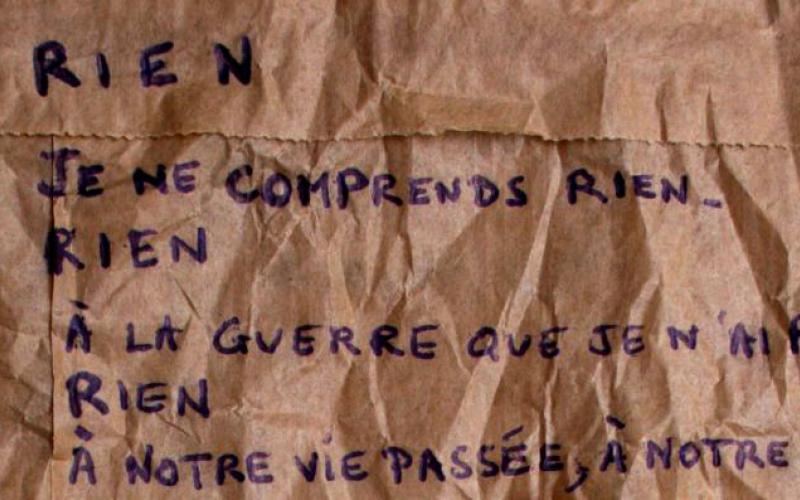 RIEN
JE NE COMPRENDS RIEN_
RIEN
À LA GUERRE QUE JE N'AI
RIEN
À NOTRE ViE PASSÉE, À NOTRE